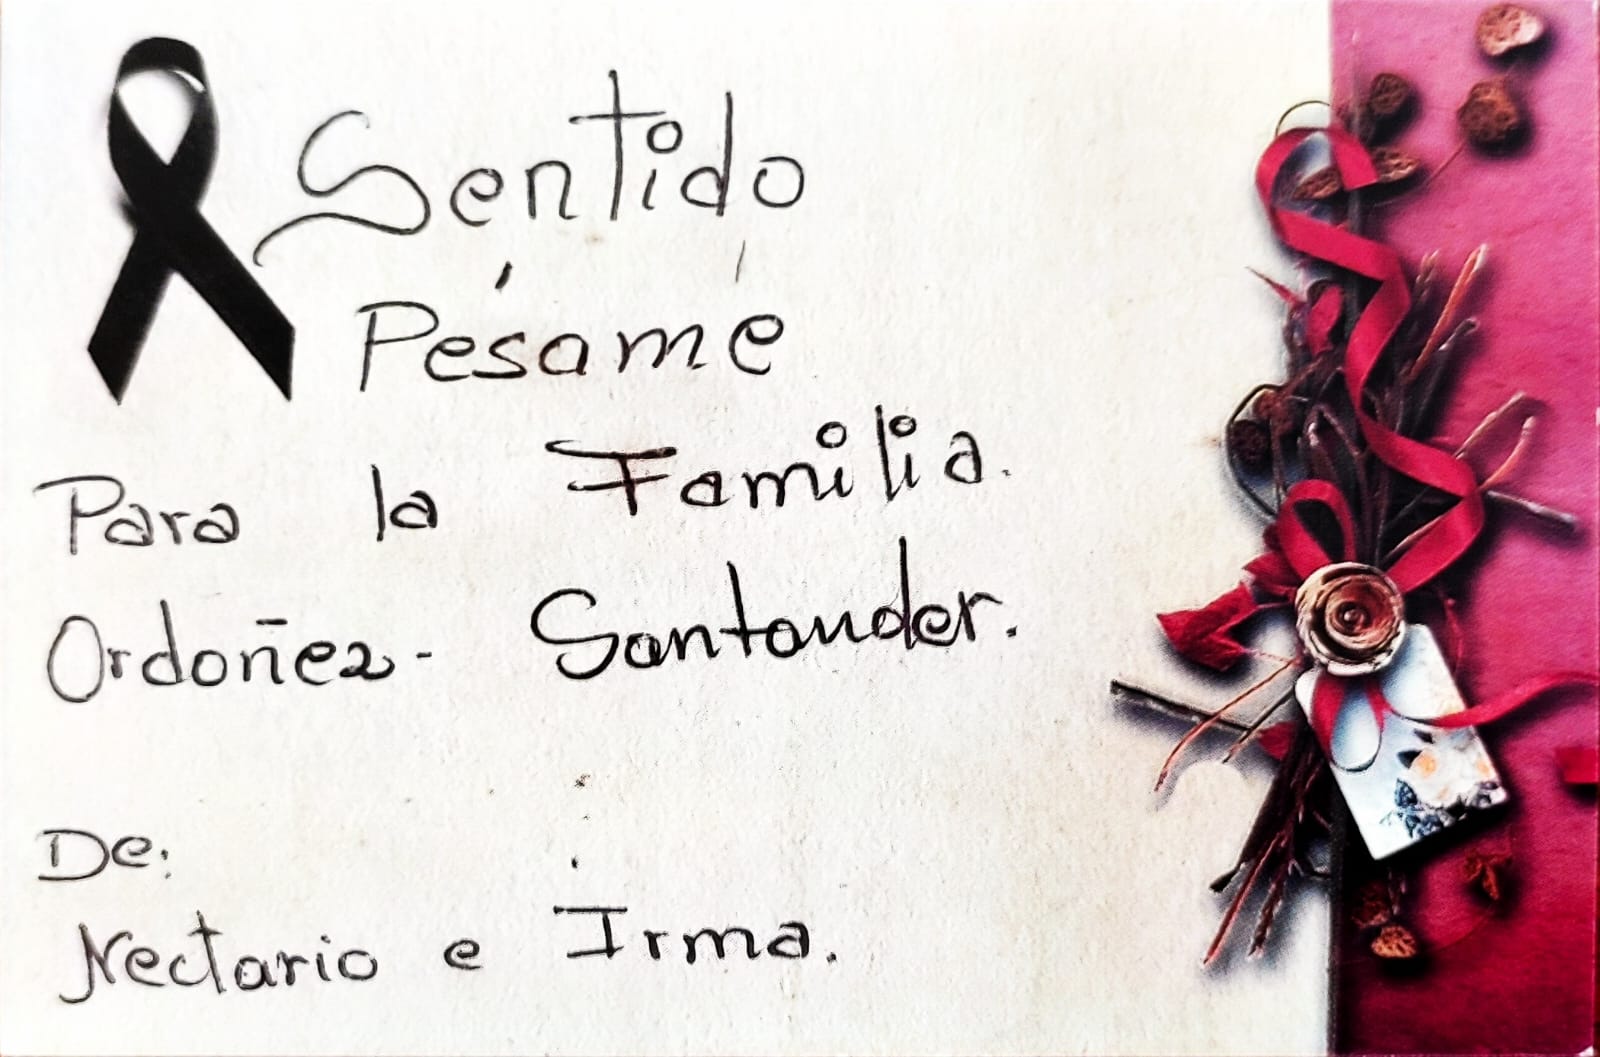 Sentido
Pésame
Para la Familia.
Ordoñez - Santander.
De:
Nectario e Irma.